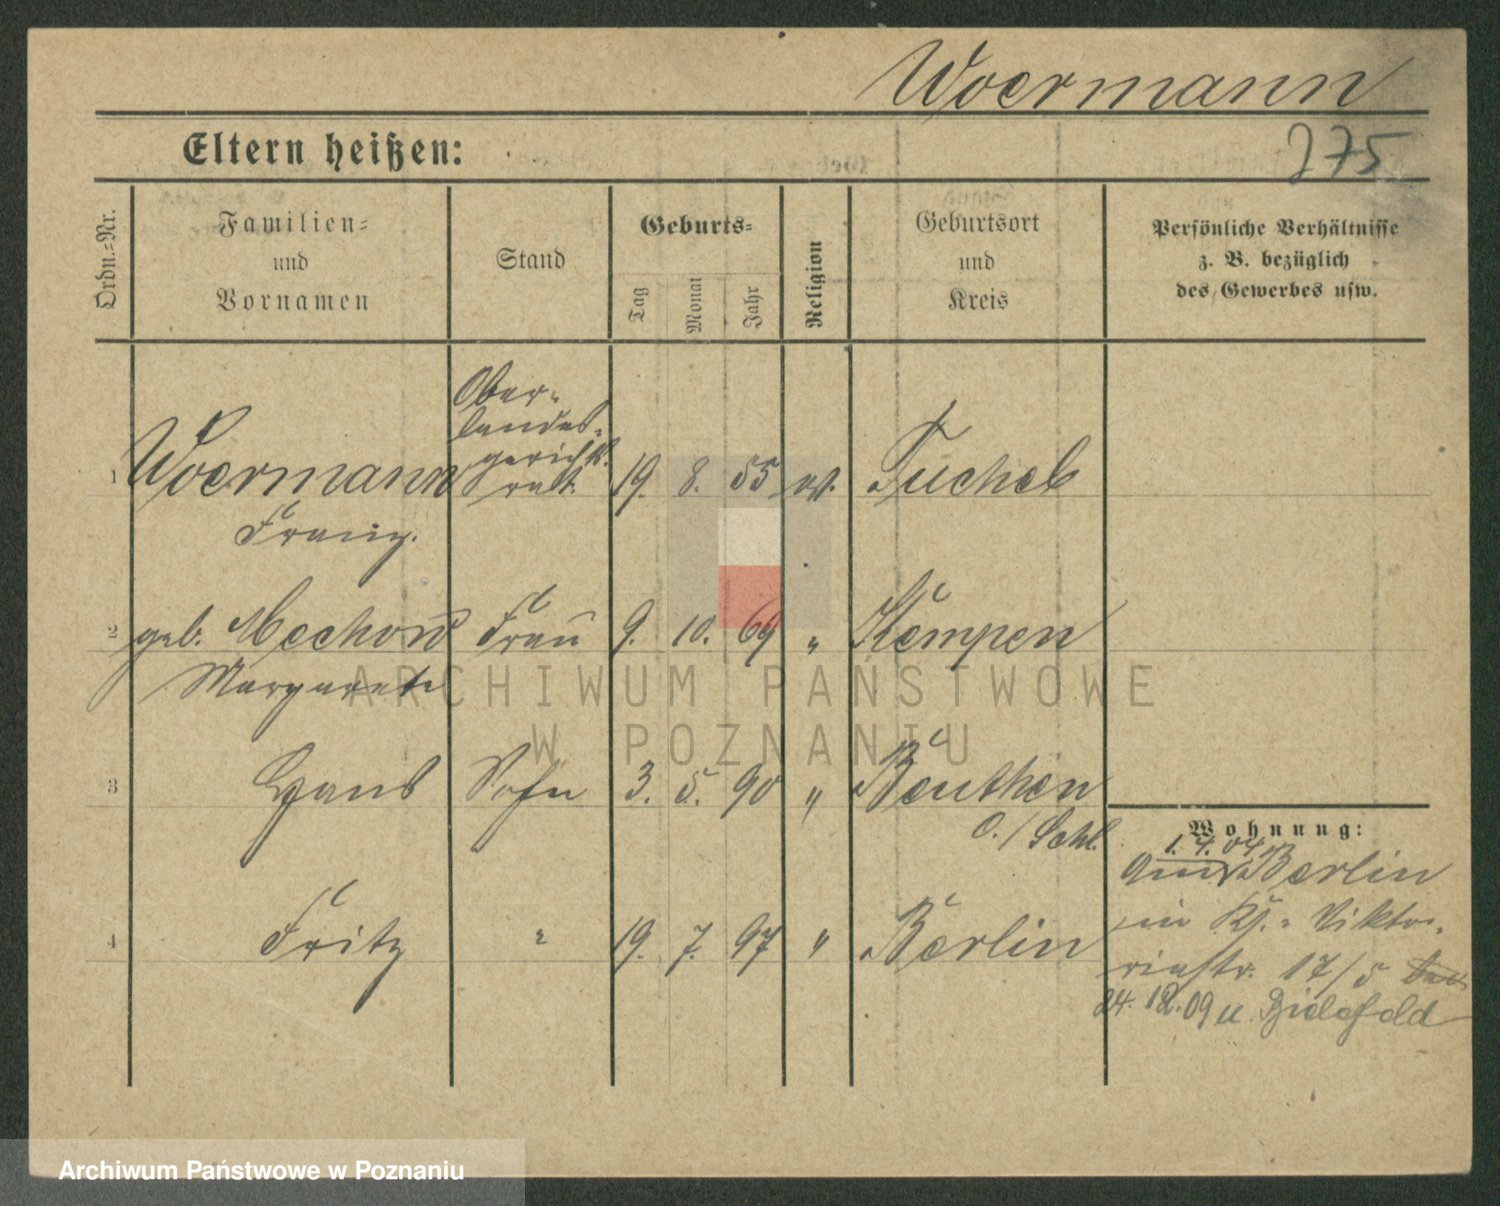 Woermann
Eltern heißen:
775
Ordn.=Nr.
Familien=
und
Vornamen
Stand
Geburts=
Tag
Monat
Jahr
Religion
Geburtsort
und
Kreis
Persönliche Verhältnisse
z. B. bezüglich
des Gewerbes usw.
Ober-
landes-
gerichts-
rat.
1 Woermann 19. 8. 55 ev. Tuchel
Franz.
2 geb. Mechow Frau 9. 10. 69 " Kempen
Margarete
ARCHIWUM PAŃSTWOWE
W POZNANIU
3 Hans Sohn 3. 5. 90 " Beuthen
O./Schl.
Wohnung:
1. 4. 04
Berlin
4 Fritz " 19. 7. 97 " Berlin
Vikto-
riastr. 17/5
24. 12. 09 n. Bielefeld
Archiwum Państwowe w Poznaniu